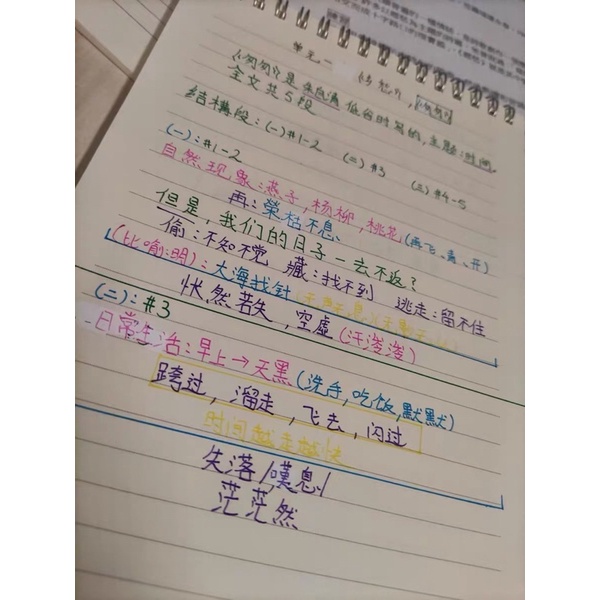 单元一
《匆匆》是朱自清 任台时写的，主题：时间。
全文共5段
结構段：(一)#1-2 (二)#3 (三)#4-5
(一)：#1-2
自然现象：燕子，杨柳，桃花(再飞、青、开)
再：榮枯不息
但是，我们的日子一去不返？
偷：不知不觉 藏：找不到 逃走：留不住
(比喻:明)：大海找针
怅然若失，空虚(汗涔涔)
(二)：#3
日常生活：早上→天黑(洗手，吃饭，默默)
跨过，溜走，飞去，闪过
时间越走越快
失落/嘆息/
茫茫然